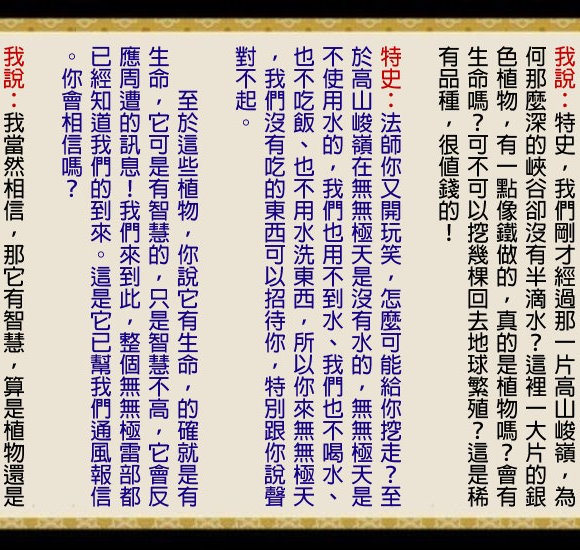 我說：特史，我們剛才經過那一片高山峻嶺，為
何那麼深的峽谷卻沒有半滴水？這裡一大片的銀
色植物，有一點像鐵做的，真的是植物嗎？會有
生命嗎？可不可以挖幾棵回去地球繁殖？這是稀
有品種，很值錢的！
特史：法師你又開玩笑，怎麼可能給你挖走？至
於高山峻嶺在無無極天是沒有水的，無無極天是
不使用水的，我們也用不到水、我們也不喝水、
也不吃飯、也不用水洗東西，所以你來無無極天
，我們沒有吃的東西可以招待你，特別跟你說聲
對不起。
至於這些植物，你說它有生命，的確就是有
生命，它可是有智慧的，只是智慧不高，它會反
應周遭的訊息！我們來到此，整個無無極雷部都
已經知道我們的到來。這是它已幫我們通風報信
。你會相信嗎？
我說：我當然相信，那它有智慧，算是植物還是